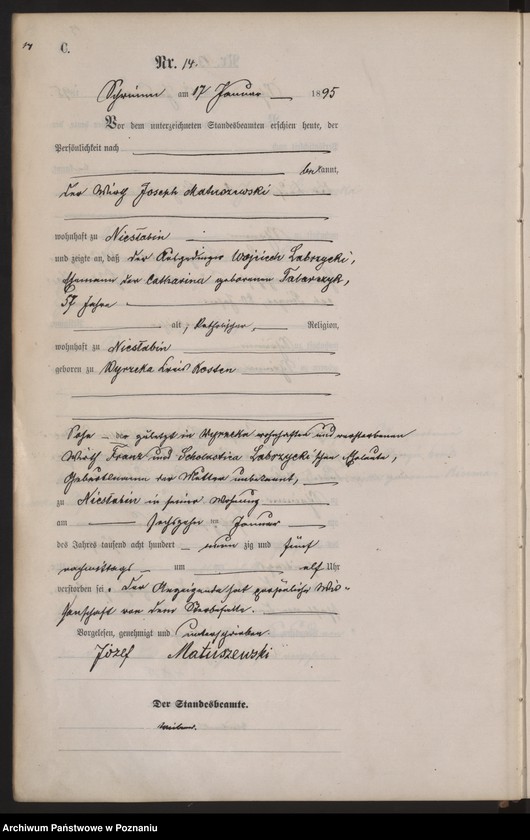 14
C.
Nr. 14.
Schrimm am 17 Januar 1895
Vor dem unterzeichneten Standesbeamten erschien heute, der
Persönlichkeit nach
bekannt,
der Wirth Joseph Matuszewski
wohnhaft zu Niesłabin
und zeigte an, daß der Wojciech Labrzycki,
Ehemann der Catharina geborenen Talarczyk,
57 Jahre
alt, katholischer, Religion,
wohnhaft zu Niesłabin
geboren zu Wyrzeka Kreis Kosten
Sohn der zuletzt in Wyrzeka wohnhaften und verstorbenen
Wirth Franz und Scholastica Labrzycki'schen Eheleute,
Geburtsname der Mutter unbekannt,
zu Niesłabin in seiner Wohnung
am sechszehn ten Januar
des Jahres tausend acht hundert neun zig und fünf
nachmittags um elf Uhr
verstorben sei. Der Anzeigende hat persönliche Wis-
senschaft von dem Sterbefalle.
Vorgelesen, genehmigt und unterschrieben.
Józef Matuszewski
Der Standesbeamte.
Archiwum Państwowe w Poznaniu